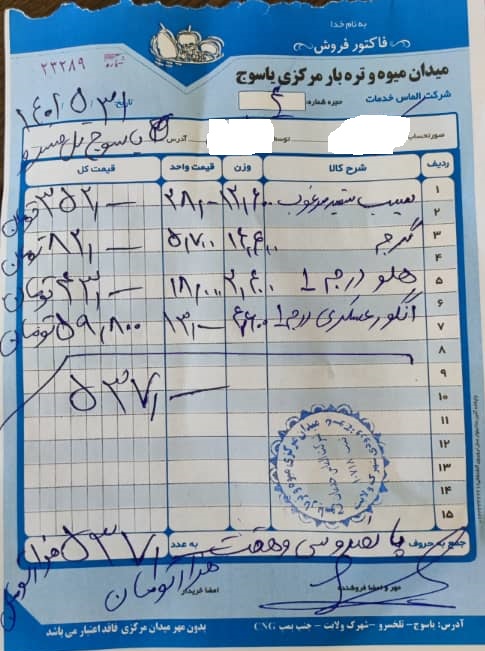 به نام خدا
فاکتور فروش
شماره ۲۳۲۸۹
میدان میوه و تره بار مرکزی یاسوج
شرکت الماس خدمات
حجره شماره: ۴
تاریخ ۱۴۰۲/۵/۳۱
صورتحساب توسط آدرس یاسوج پل
ردیف شرح کالا وزن قیمت واحد قیمت کل
۱
۲ سیب سفید مرغوب ۳۵۲/۰۰۰ تومان
۳ گوجه ۸۲/۰۰۰ تومان
۴
۵ هلو درجه ۱ ۱۸/۰۰۰ ۴۳/۰۰۰ تومان
۶
۷ انگور عسکری درجه ۱ ۱۳/۰۰۰ ۵۹/۸۰۰ تومان
۸
۹ ۵۳۷/۰۰۰
۱۰
۱۱
۱۲
۱۳
۱۴
۱۵
جمع به حروف پانصد و سی و هفت هزار تومان به عدد ۵۳۷/۰۰۰ هزار تومان
مهر و امضا فروشنده امضا خریدار
بدون مهر میدان مرکزی فاقد اعتبار می باشد
آدرس: یاسوج - تلخسرو - شهرک ولایت - جنب پمپ CNG